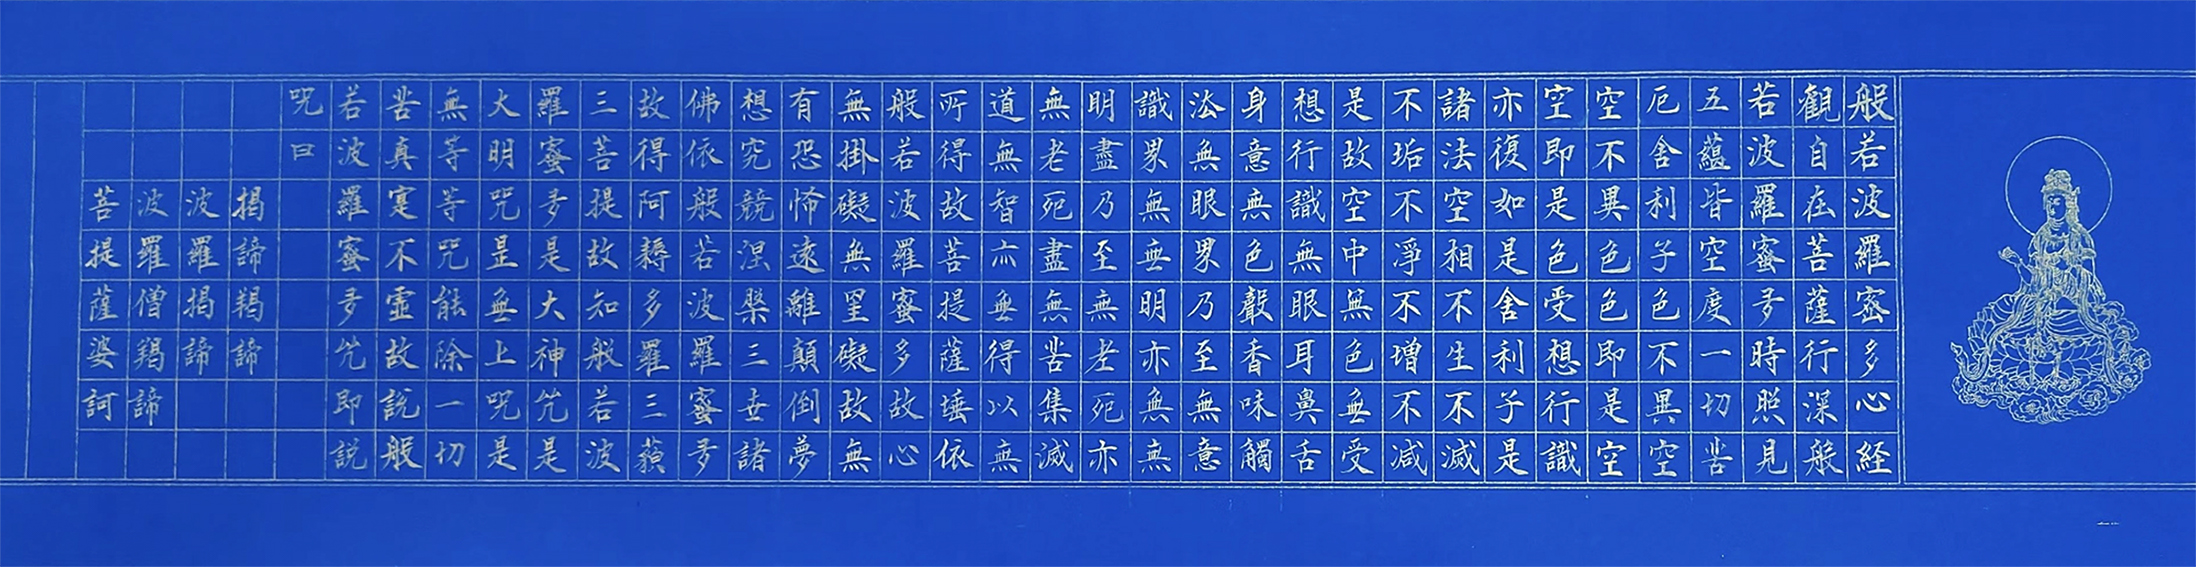 般若波羅蜜多心経
觀自在菩薩行深般
若波羅蜜多時照見
五蘊皆空度一切苦
厄舍利子色不異空
空不異色色即是空
空即是色受想行識
亦復如是舍利子是
諸法空相不生不滅
不垢不淨不增不減
是故空中無色無受
想行識無眼耳鼻舌
身意無色聲香味觸
法無眼界乃至無意
識界無無明亦無無
明盡乃至無老死亦
無老死盡無苦集滅
道無智亦無得以無
所得故菩提薩埵依
般若波羅蜜多故心
無掛礙無罣礙故無
有恐怖遠離顛倒夢
想究競涅槃三世諸
佛依般若波羅蜜多
故得阿耨多羅三藐
三菩提故知般若波
羅蜜多是大神咒是
大明咒是無上咒是
無等等咒能除一切
苦真寔不虛故說般
若波羅蜜多咒即説
咒曰
揭諦羯諦
波羅揭諦
波羅僧羯諦
菩提薩婆訶